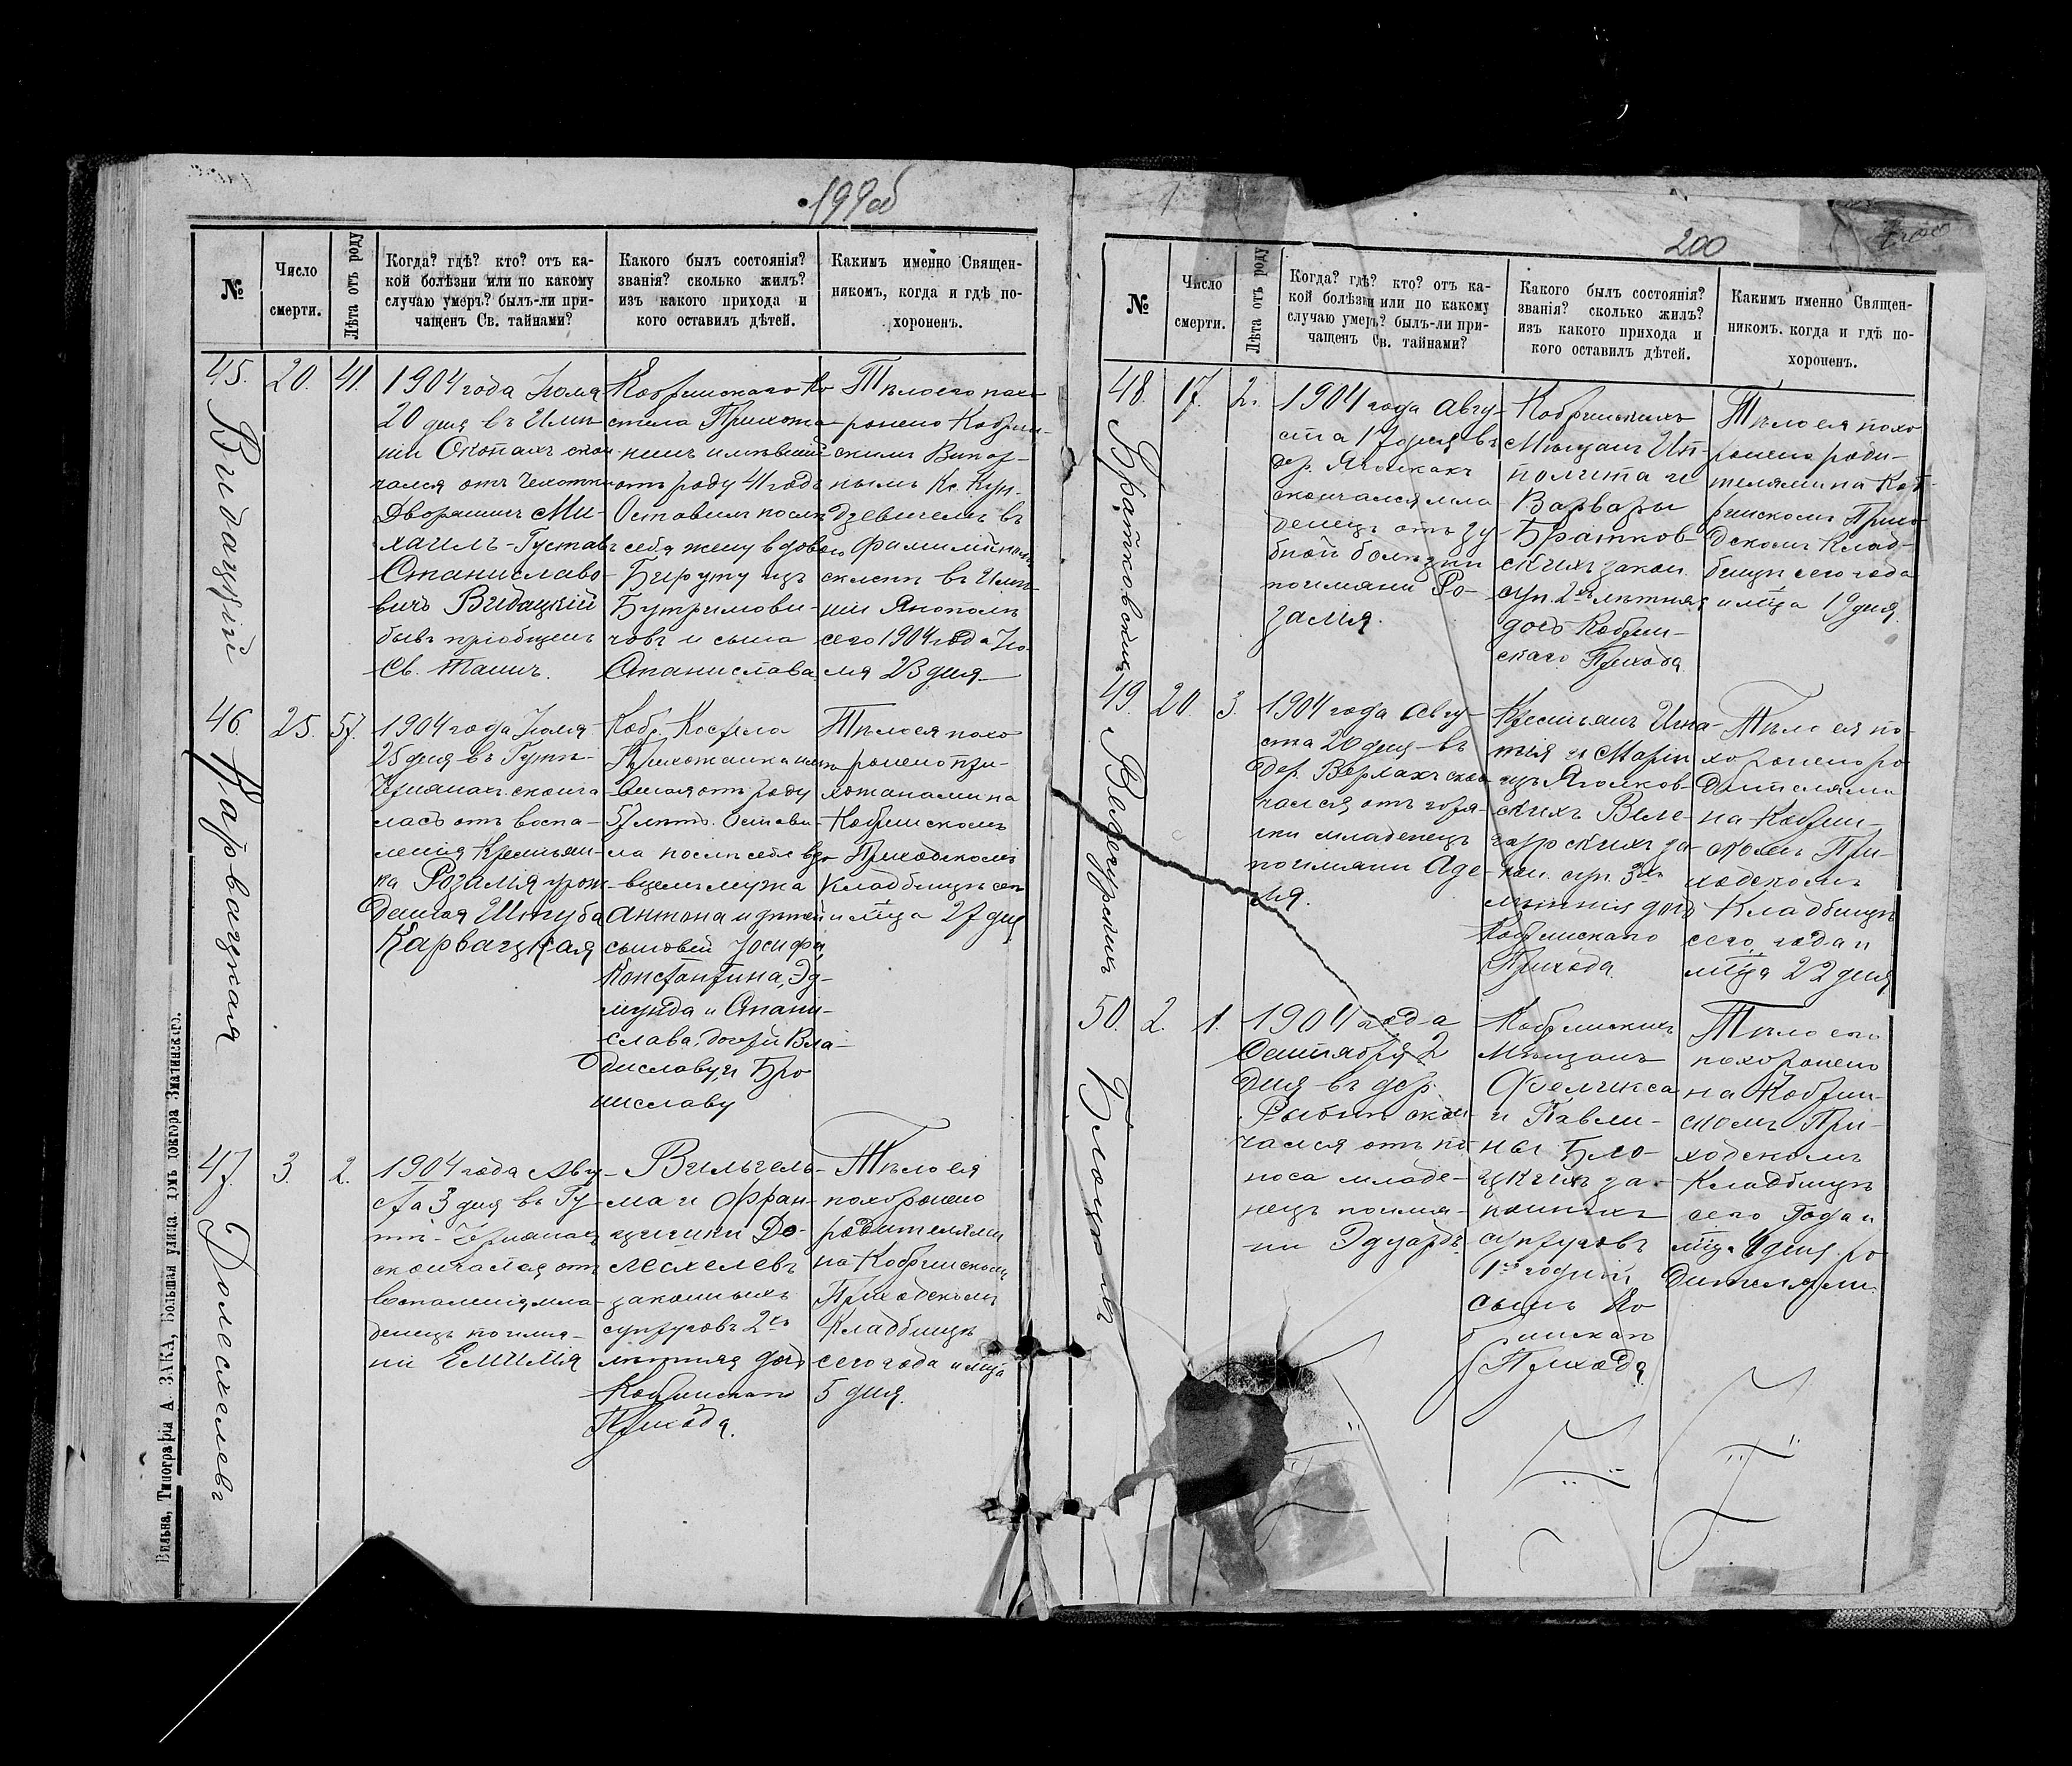 199об
№
Число
смерти.
Лѣта отъ роду
Когда? гдѣ? кто? отъ ка-
кой болѣзни или по какому
случаю умеръ? былъ-ли при-
чащенъ Св. тайнами?
Какого былъ состоянія?
званія? сколько жилъ?
изъ какого прихода и
кого оставилъ дѣтей.
Какимъ именно Священ-
никомъ, когда и гдѣ по-
хороненъ.
45.
Видацкій
20.
41.
1904 года Іюля
20 дня въ Имѣ-
ніи Окопахъ скон-
чался отъ Чахотки
Дворянинъ Ми-
хаилъ-Густавъ
Станиславо-
вичъ Видацкій
бывъ пріобщенъ
Св. Таинъ.
Кобринскаго Ко
стела Прихожа-
нинъ имѣвшій
отъ роду 41 годъ
Оставилъ послѣ
себя жену вдовою
Бируту изъ
Бутримови-
човъ и сына
Станислава
Тѣло его похо-
ронено Кобрин-
скимъ Викар-
нымъ Кс. Кун-
дзевичемъ въ
Фамилійномъ
склепѣ въ Имѣ-
ніи Янополѣ
сего 1904 года Ію-
ля 23 дня
46.
Карвацкая
25.
57.
1904 года Іюля
25 дня въ Гутѣ-
Чрманахъ сконча
лась отъ воспа-
ленія Крестьян-
ка Розалія урож-
денная Шлуба
Карвацкая
Кобр. Костела
Прихожанка имѣ
вшая отъ роду
57 лѣтъ. Остави-
ла послѣ себя вдо-
вцемъ мужа
Антона и дѣтей
сыновей Іосифа,
Константина, Эд-
мунда и Стани-
слава, дочери Вла-
диславу, и Бро
ниславу
Тѣло ея похо
ронено при-
хожанами на
Кобринскомъ
Приходскомъ
Кладбищѣ сего
и мѣца 27 дня
47.
Долесхелевъ
3.
2.
1904 года Авгу-
ста 3 дня въ Гу-
тѣ-Чрманахъ
скончалась отъ
воспаленія мла-
денецъ по име-
ни Емилія
Вильгель-
ма и Фран-
цишки До-
лесхелевъ
законныхъ
супруговъ 2хъ
лѣтняя дочь
Кобринскаго
Прихода.
Тѣло ея
похоронено
родителями
на Кобринскомъ
Приходскомъ
Кладбищѣ
сего года и мѣца
5 дня.
Вильна, Типографія А. ЗАКА, Большая улица, домъ доктора Змачинскаго.
200
№
Число
смерти.
Лѣта отъ роду
Когда? гдѣ? кто? отъ ка-
кой болѣзни или по какому
случаю умеръ? былъ-ли при-
чащенъ Св. тайнами?
Какого былъ состоянія?
званія? сколько жилъ?
изъ какого прихода и
кого оставилъ дѣтей.
Какимъ именно Священ-
никомъ, когда и гдѣ по-
хороненъ.
48.
Братковская
17.
2.
1904 года Авгу-
ста 17 дня въ
дер. Яголкахъ
скончался мла
денецъ отъ зу
бной болѣзни
по имени Ро-
залія.
Кобринскихъ
Мѣщанъ Ип-
полита и
Варвары
Братков-
скихъ закон.
супр. 2хъ лѣтняя
дочь Кобрин-
скаго Прихода
Тѣло ея похо
ронено роди-
телями на Коб-
ринскомъ Прихо-
дскомъ Клад-
бищѣ сего года
и мѣца 19 дня
49.
20.
3.
1904 года Авгу-
ста 20 дня въ
дер. Верлахъ скон
чался отъ горя-
чки младенецъ
по имени Аде-
ля.
Крестьянъ Игна-
тія и Маріи
изъ Яголков-
скихъ
за-
кон. супр. 3хъ
лѣтняя дочь
Кобринскаго
Прихода.
Тѣло ея по-
хоронено ро
дителями
на Кобрин-
скомъ При-
ходскомъ
Кладбищѣ
сего года и
мѣца 22 дня
50.
Блоцкій
2.
1.
1904 года
Сентября 2
дня въ дер.
Рыбнѣ скон
чался отъ по
носа младе-
нецъ по име-
ни Эдуардъ.
Кобринскихъ
Мѣщанъ
Феликса
и Павли-
ны Бло-
цкихъ за-
конныхъ
супруговъ
1но годній
сынъ Ко
бринскаго
Прихода
Тѣло его
похоронено
на Кобрин-
скомъ При-
ходскомъ
Кладбищѣ
сего Года и
мѣца 4 дня ро
дителями.